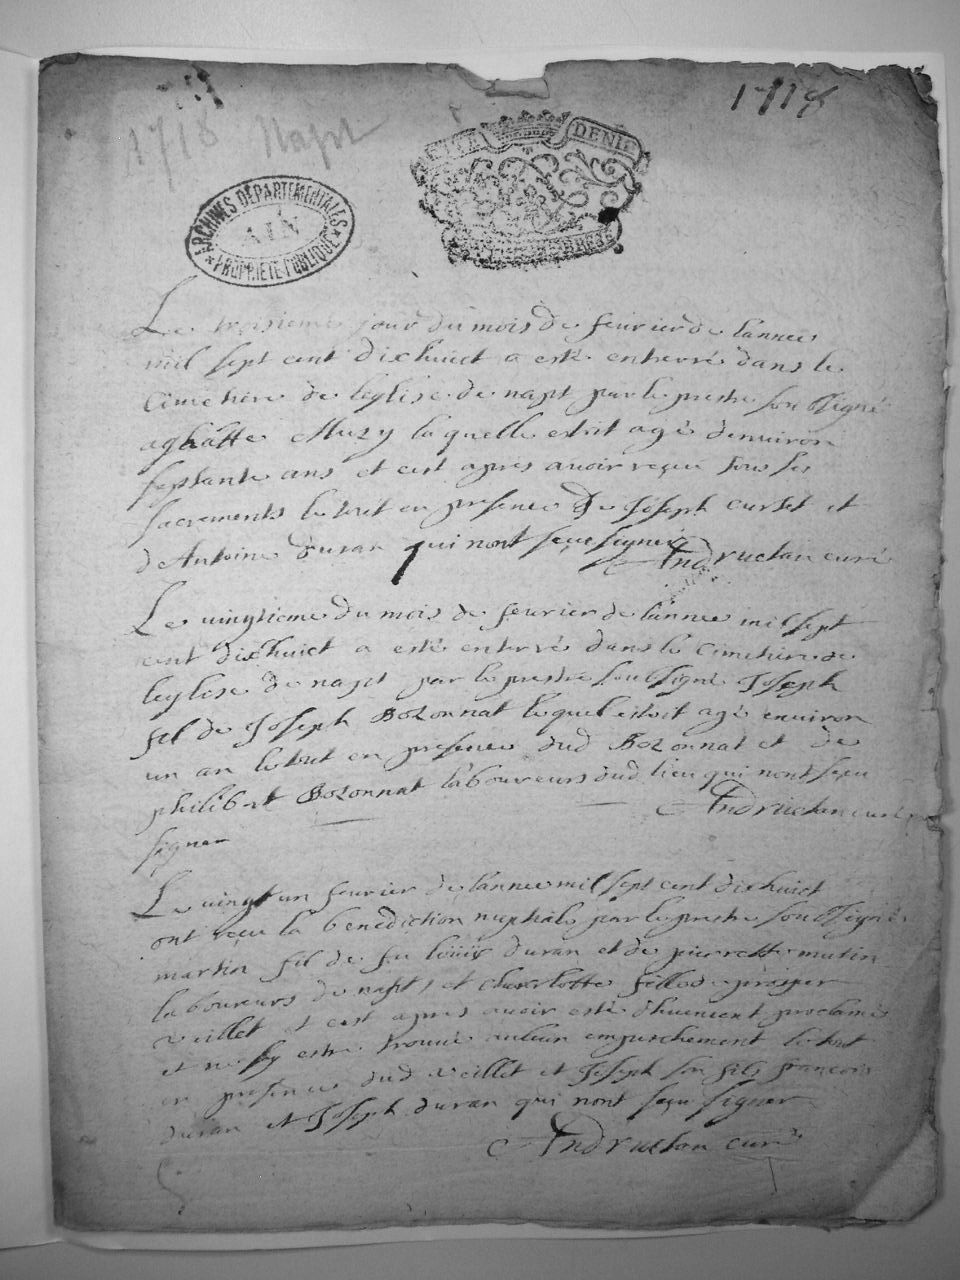 1718
1718 Napt
DENIE
ARCHIVES DÉPARTEMENTALES
AIN
PROPRIÉTÉ PUBLIQUE
Le troisieme jour du mois de feurier de lannee
mil sept cent dixhuict a esté enterré dans le
Cimetiere de leglise de napt par le prestre soubsigné
aghatte Muzy laquelle estoit agé denuiron
septante ans et cest apres auoir reçeu tous les
sacrements le tout en presence de Joseph curtet et
dAntoine duran qui nont sçeu signer Andruetan curé
Le vingtieme du mois de feurier de lannee mil sept
cent dixhuict a esté enterré dans le Cimetiere de
leglise de napt par le prestre soubsigné Joseph
fil de Joseph Bozonnat lequel estoit agé enuiron
un an le tout en presence dud Bozonnat et de
philibert Bozonnat laboureurs dud. lieu qui nont sçeu
signer Andruetan curé
Le vingt un feurier de lannee mil sept cent dixhuict
ont reçeu la benediction nuptiale par le prestre soubsigné
martin fil de fu louis duran et de pierrette mutin
laboureurs de napt, et Charlotte fille de prosper
veillet et cest apres auoir esté dhuement proclamés
et ne sy estre trouué aulcun empeschement le tout
en presence dud veillet et Joseph son fils francois
duran et Joseph duran qui nont sçeu signer
Andruetan curé